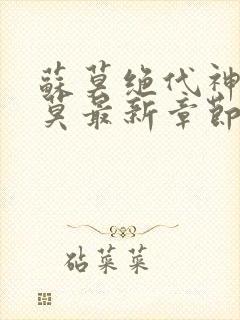 蘇莫绝代神
莫最新章節
砧菜菜